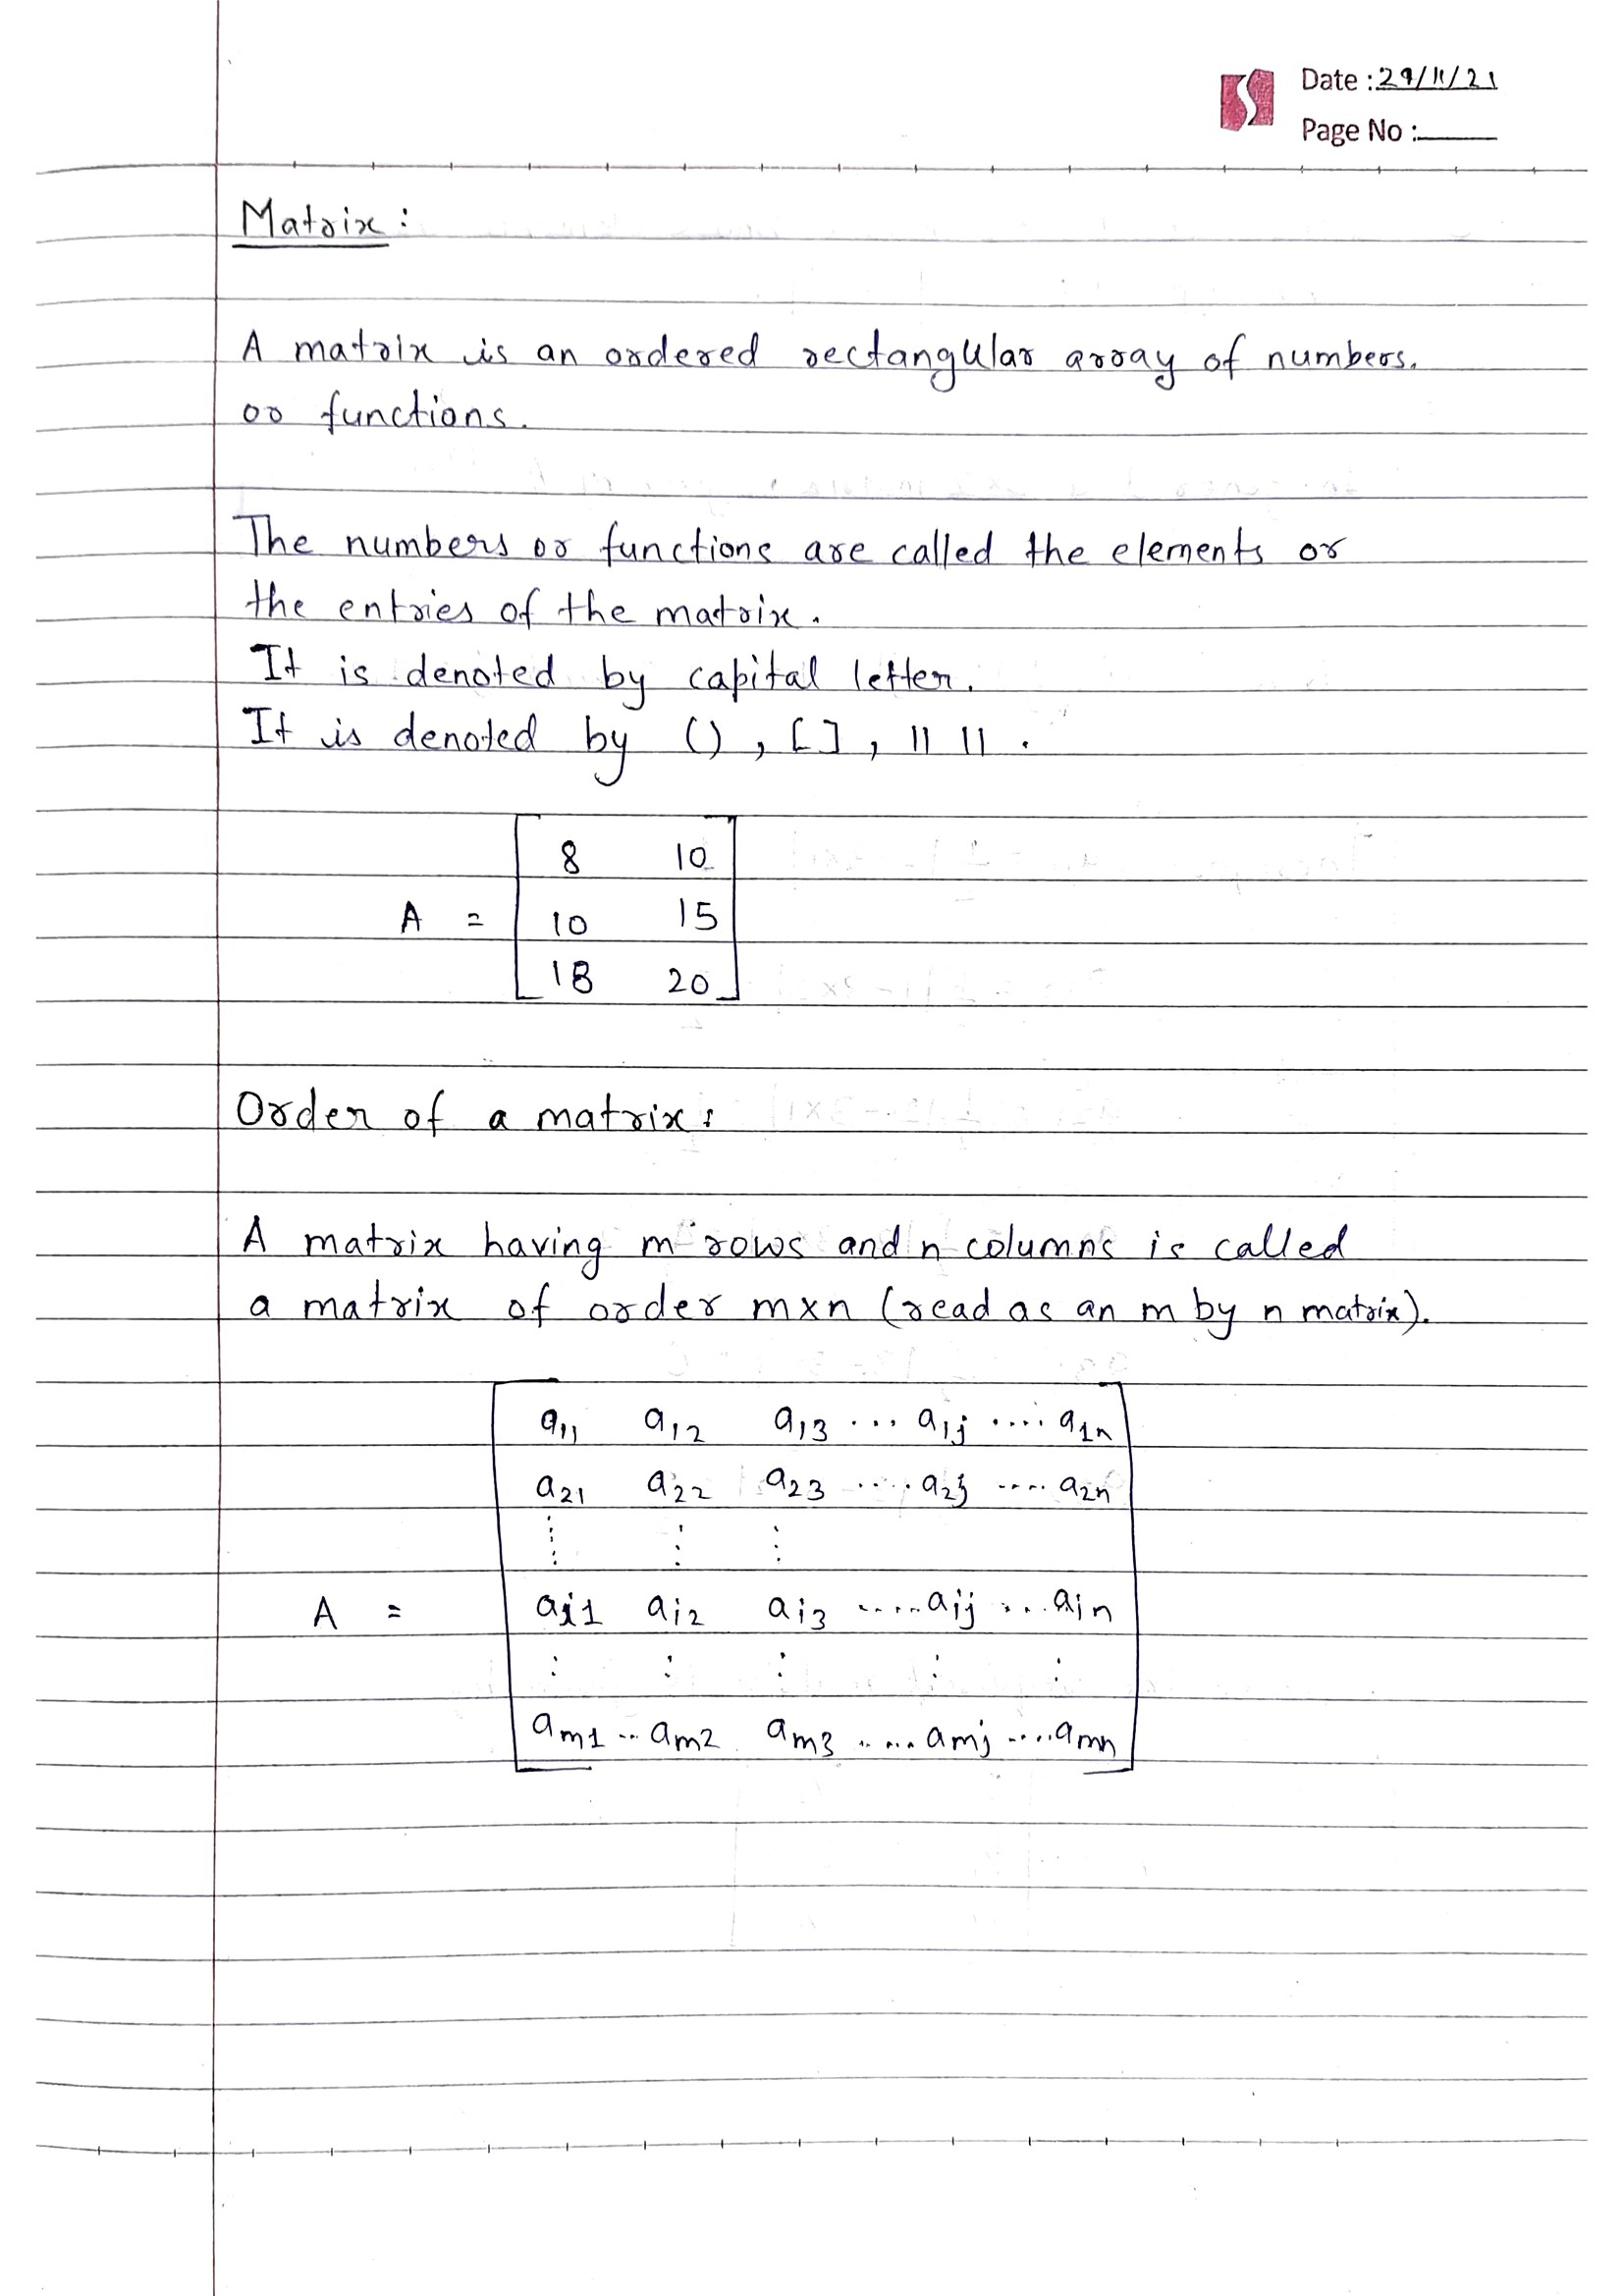 Date : 29/11/21
Page No :
Matrix :
A matrix is an ordered rectangular array of numbers.
or functions.
The numbers or functions are called the elements or
the entries of the matrix.
It is denoted by capital letter.
It is denoted by () , [ ] , || || .
8 10
A = 10 15
18 20
Order of a matrix :
A matrix having m rows and n columns is called
a matrix of order m×n (read as an m by n matrix).
a11 a12 a13 ... a1j .... a1n
a21 a22 a23 ..... a2j .... a2n
⋮ ⋮ ⋮
A = ai1 ai2 ai3 ..... aij ... ain
⋮ ⋮ ⋮ ⋮ ⋮
am1 .. am2 am3 ..... amj .... amn